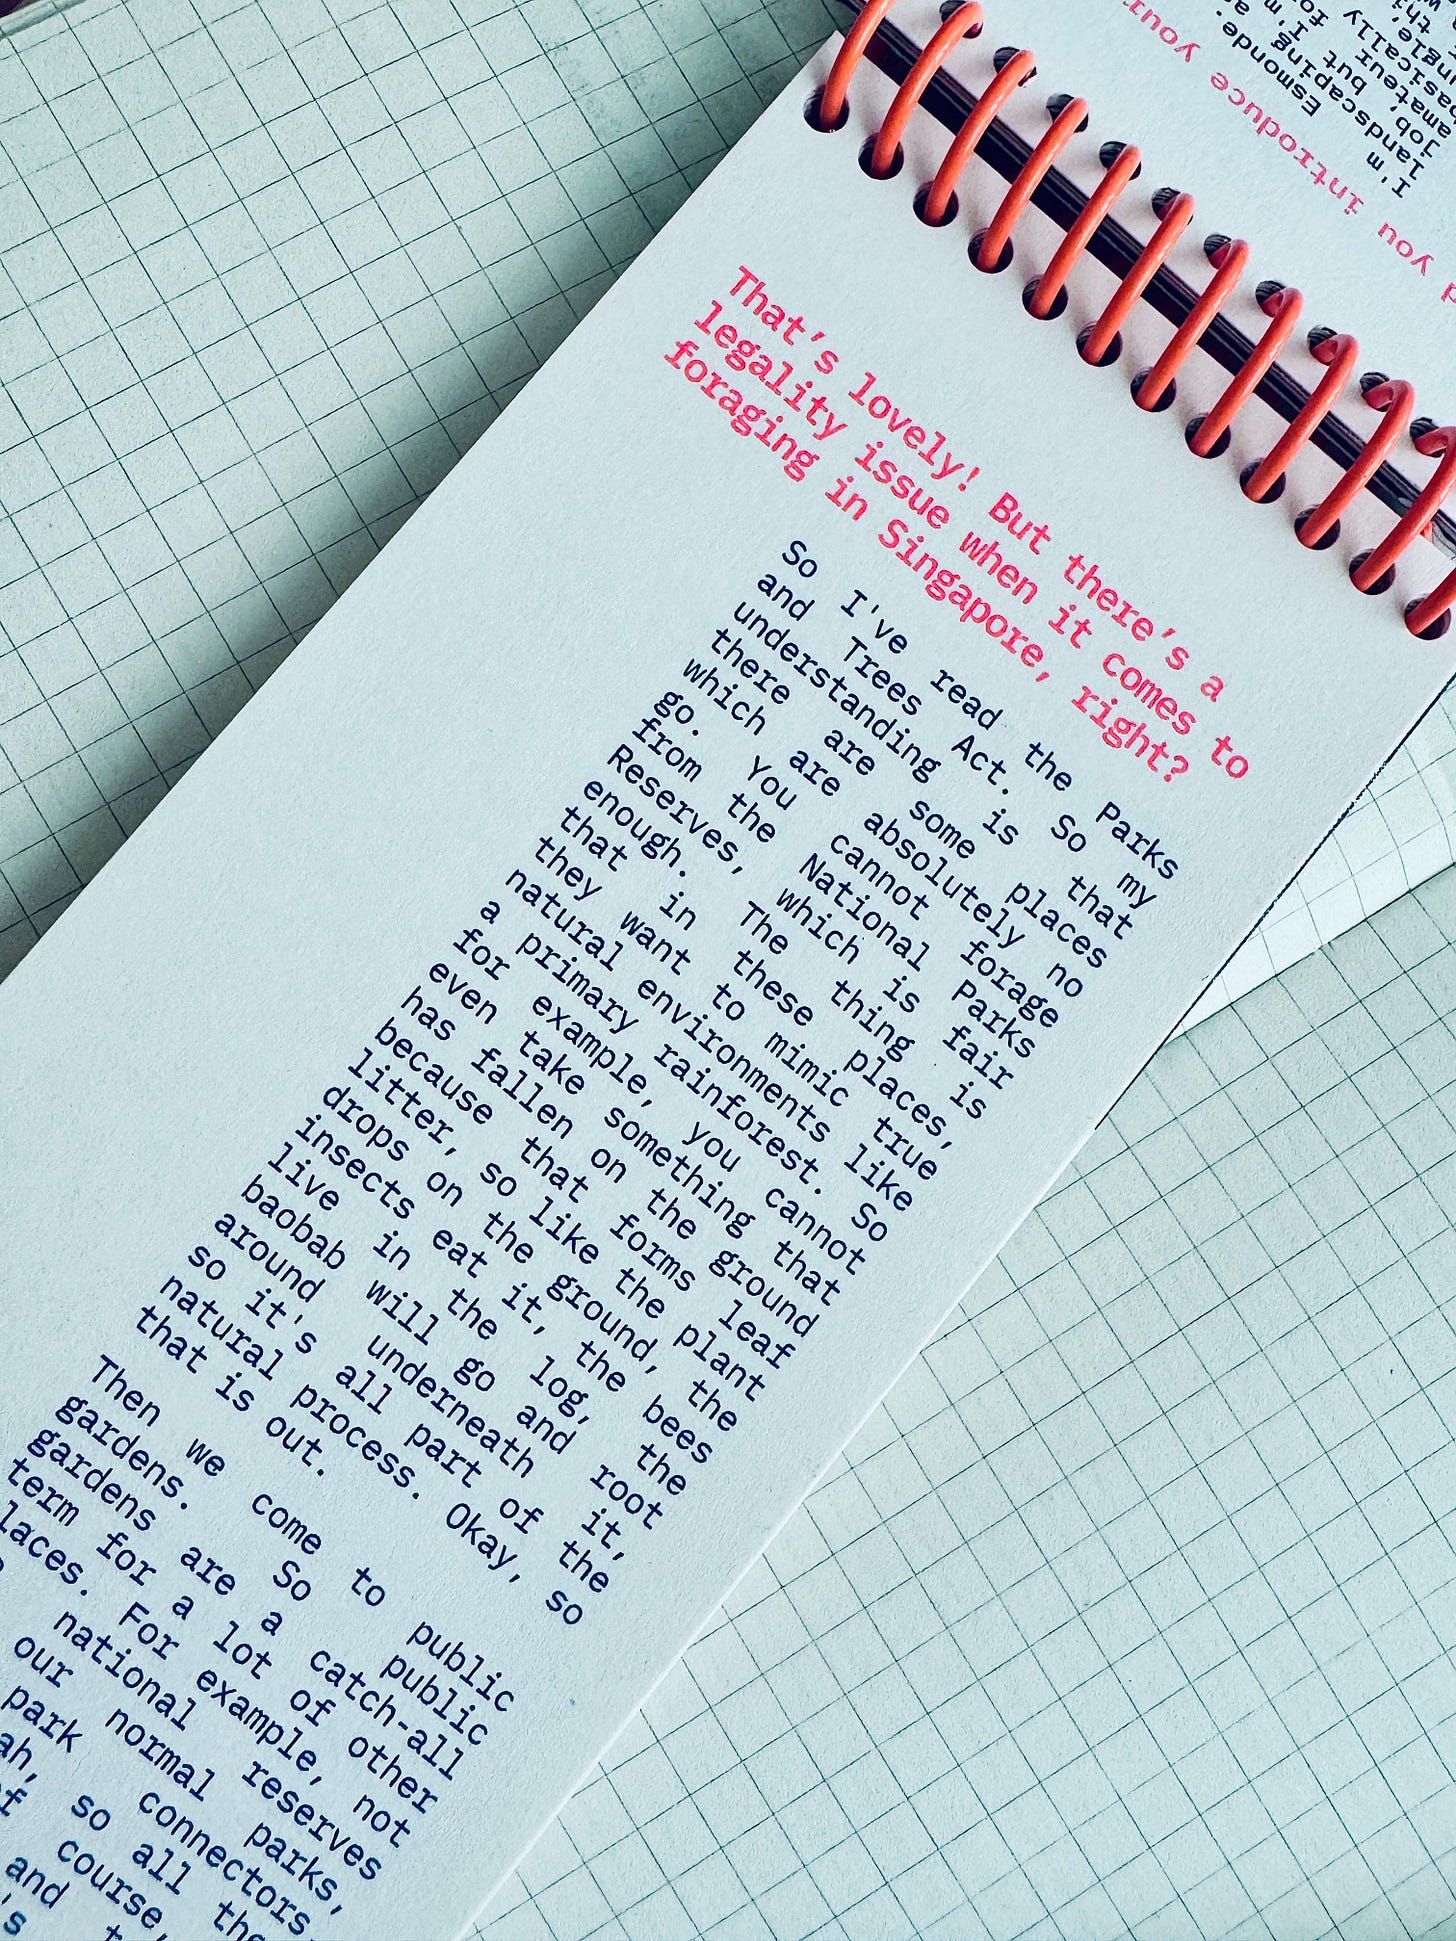 you introduce
I'm Esmonde.
landscaping
job, but I'm
amateur
basically
That's lovely! But there's a
legality issue when it comes to
foraging in Singapore, right?
So I've read the Parks
and Trees Act. So my
understanding is that
there are some places
which are absolutely no
go. You cannot forage
from the National Parks
Reserves, which is fair
enough. The thing is
that in these places,
they want to mimic true
natural environments like
a primary rainforest. So
for example, you cannot
even take something that
has fallen on the ground
because that forms leaf
litter, so like the plant
drops on the ground, the
insects eat it, the bees
live in the log, the
baobab will go and root
around underneath it,
so it's all part of the
natural process. Okay, so
that is out.
Then we come to public
gardens. So public
gardens are a catch-all
term for a lot of other
places. For example, not
national reserves
our normal parks,
park connectors,
so all the
course,
and